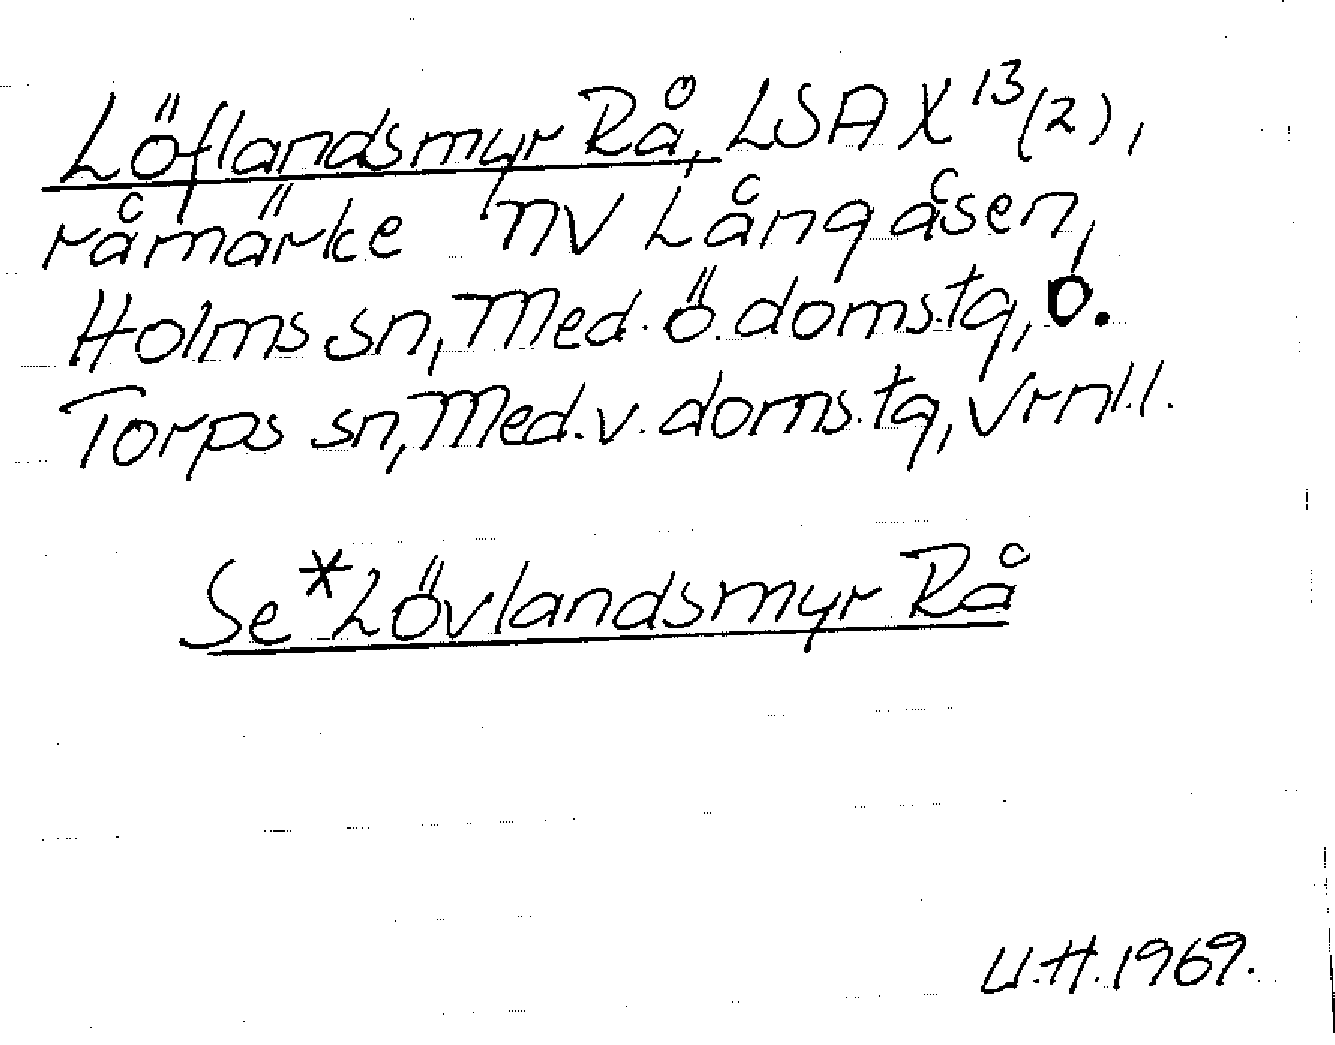 Löflandsmyr Rå, LSA X 13(2),
råmärke NV Långåsen,
Holms sn, Med. ö. doms.tg, o.
Torps sn, Med. v. doms.tg, Vrnl.l.
Se *Lövlandsmyr Rå
U.H. 1969.